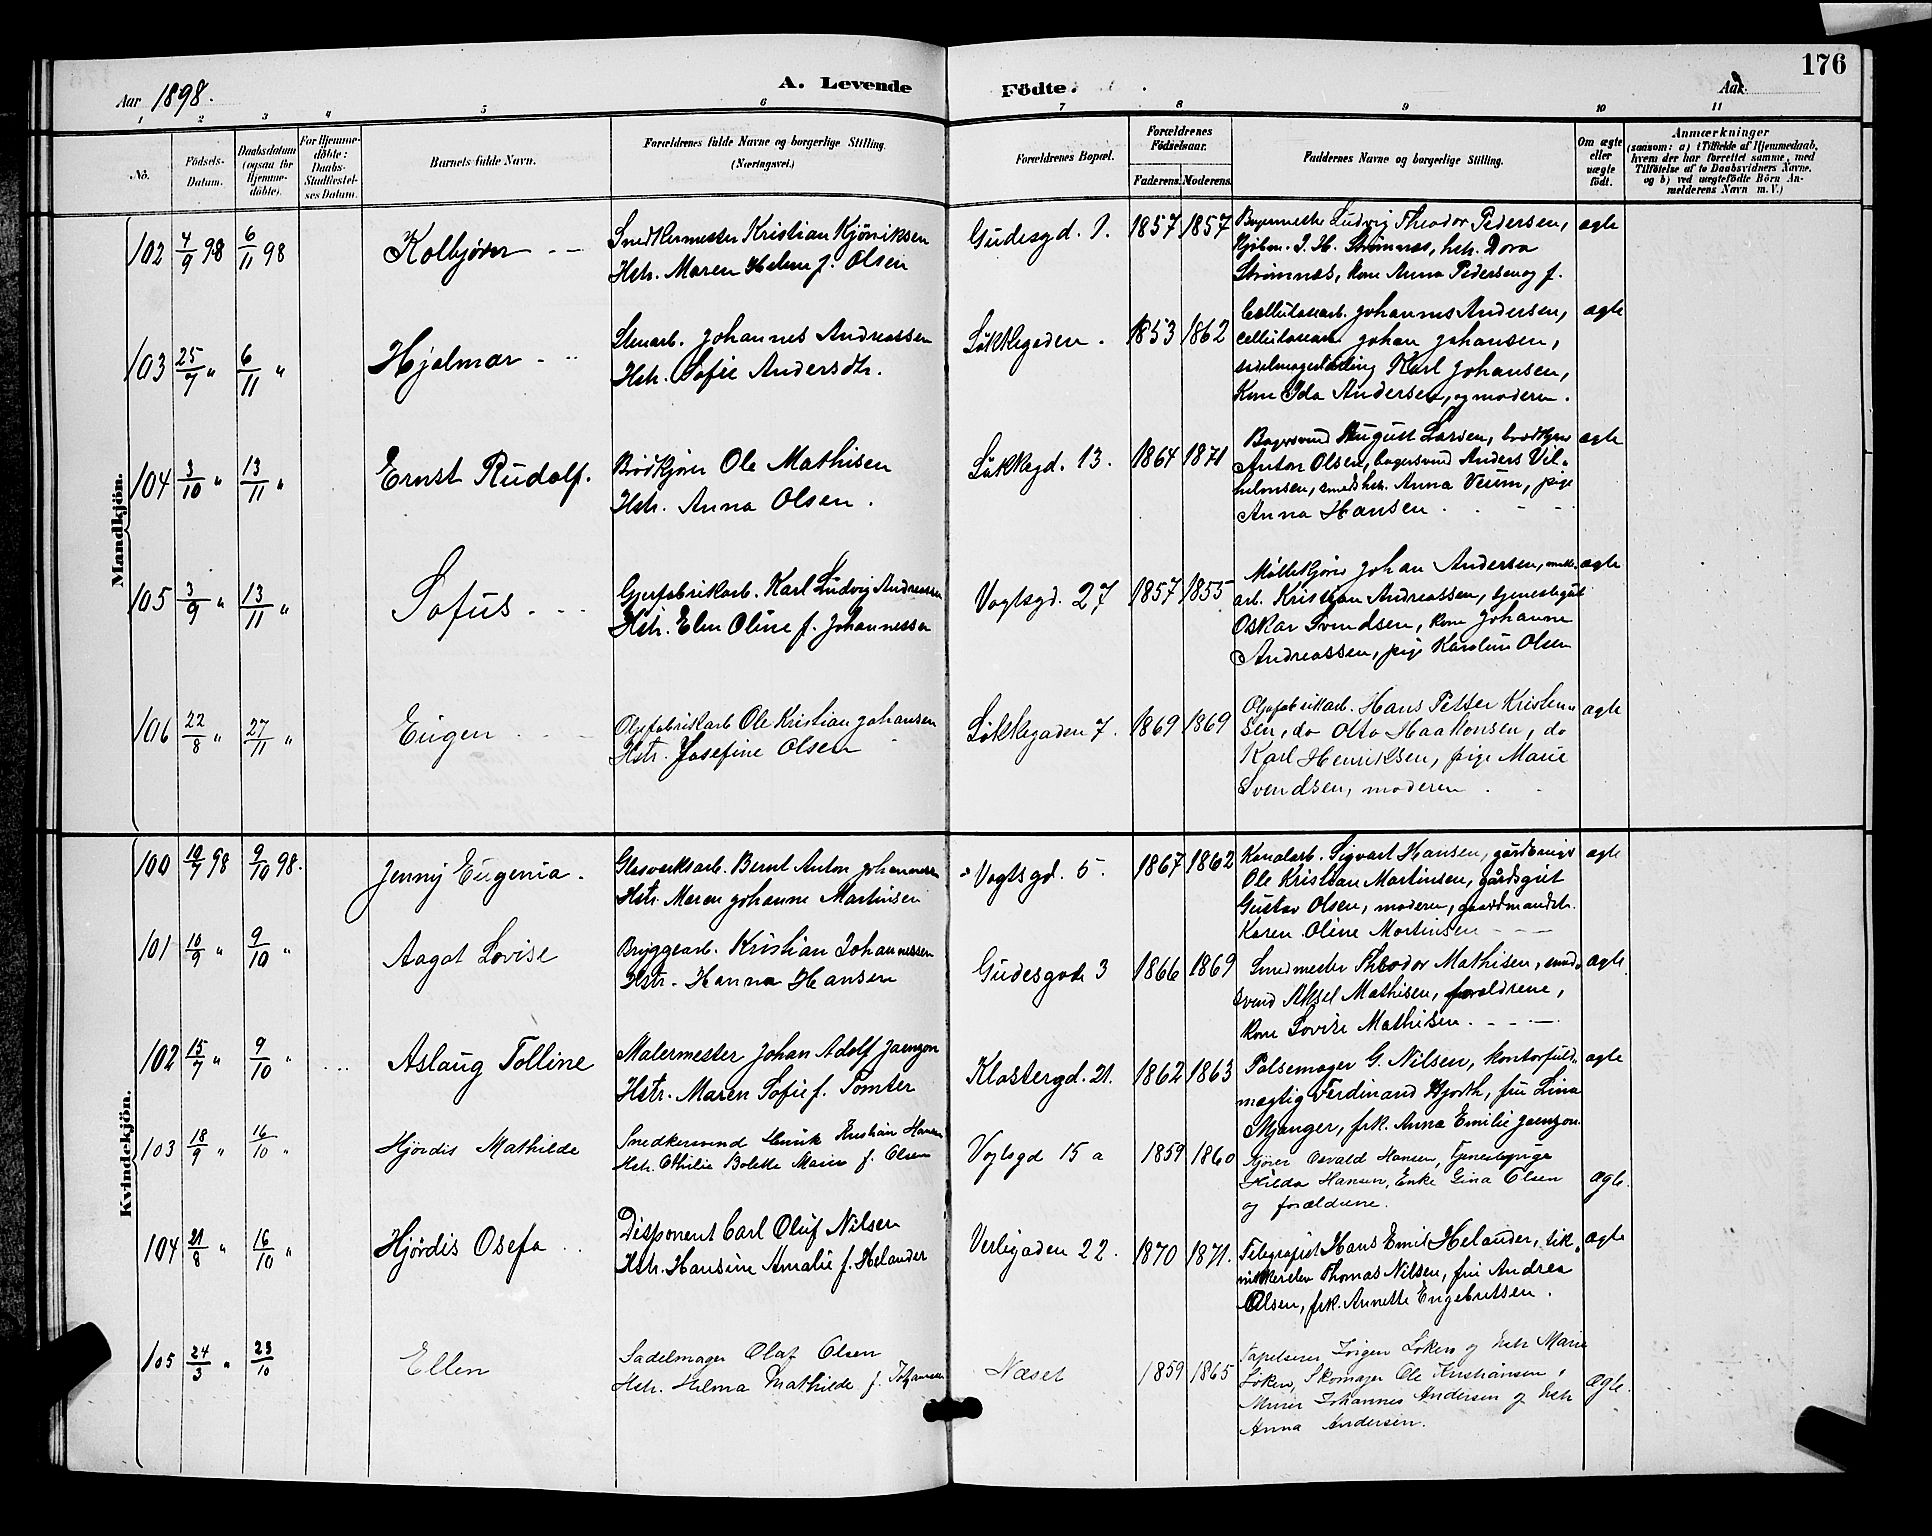 176
Aar 1898.
A. Levende
Fødte.
Aar
1 2 3 4 5 6 7 8 9 10 11
No.
Födsels-Datum.
Daabsdatum (ogsaa for Hjemme-döbte).
For Hjemme-döbte: Daabs-Stadfæstel-ses Datum.
Barnets fulde Navn.
Forældrenes fulde Navne og borgerlige Stilling. (Næringsvei.)
Forældrenes Bopæl.
Forældrenes Födselsaar.
Faderens.
Moderens.
Faddernes Navne og borgerlige Stilling.
Om ægte eller uægte födt.
Anmærkninger
(saasom: a) i Tilfælde af Hjemmedaab, hvem der har forrettet samme, med Tilföielse af to Daabsvidners Navne, og b) ved uægtefödte Börn An-melderens Navn m. V.)
Mandkjön.
102 4/9 98 6/11 98 Kolbjörn - -
Snedkermester Kristian Kjöniksen
Hstr. Maren Helene f. Olsen
Gudesgd. 1. 1857 1857
Bagermester Ludvig Theodor Pedersen,
Kjöbm. J. H. Strömnæs, hstr. Dora
Strömnæs, kone Anna Pedersen og f.
ægte
103 25/7 " 6/11 " Hjalmar - "
Stenarb. Johannes Andreassen
Hstr. Sofie Andersdtr.
Løkkegaden. 1853 1862
Cellulosearb. Johannes Andersen,
cellulosearb. Johan Johansen,
sadelmagerlærling Karl Johansen,
Kone Ida Andersen, og moderen.
ægte
104 3/10 " 13/11 " Ernst Rudolf.
Brødkjører Ole Mathisen
Hstr. Anna Olsen.
Løkkegd. 13. 1864 1871
Bagersvend August Larsen, brødkjører
Anton Olsen, bagersvend Anders Vil-
helmsen, smedhstr. Anna Veum, pige
Anna Hansen.
ægte
105 3/9 " 13/11 " Sofus. - -
Gjærfabrikarb. Karl Ludvig Andreassen
Hstr. Elen Oline f. Johannessen
Vogtsgd. 27 1857 1855
Møllekjører Johan Andersen,
arb. Kristian Andreassen, tjenestegut
Oskar Svendsen, kone Johanne
Andreassen, pige Karoline Olsen
ægte
106 22/8 " 27/11 " Eugen
Oljefabrikarb Ole Kristian Johansen
Hstr. Josefine Olsen
Løkkegaden 7. 1869 1869
Oljefabrikarb. Hans Petter Kristen-
sen, do Otto Haakonsen, do
Karl Henriksen, pige Marie
Svendsen, moderen.
ægte
Kvindekjön.
100 10/7 98 9/10 98. Jenny Eugenia.
Glasverksarb. Bernt Anton Johannessen
Hstr. Maren Johanne Martinsen
Vogtsgd. 5. 1867 1862
Kanalarb. Sigvart Hansen, gårdbruger
Ole Kristian Martinsen, gårdsgut
Gustav Olsen, moderen, gaardmandstr.
Karen Oline Martinsen - - -
ægte
101 10/9 " 9/10 " Aagot Lovise
Bryggearb. Kristian Johannessen
Hstr. Hanna Hansen
Gudesgade 3 1866 1869
Smedmester Theodor Mathisen, smed-
svend Aksel Mathisen, forældrene,
kone Lovise Mathisen. - - -
ægte.
102 15/7 " 9/10 " Aslaug Tolline
Malermester Johan Adolf Jaenzon
Hstr. Maren Sofie f. Tomter
Klostergd. 21. 1862 1863
Pølsemager G. Nilsen, kontorfuld-
mægtig Ferdinand Hjorth, fru Lina
Manger, frk. Anna Emilie Jaenzon
ægte
103 18/9 " 16/10 " Hjördis Mathilde
Snedkersvend Henrik Kristian Hansen
Hstr. Othilie Bolette Marie f. Olsen
Vogtsgd 15 a 1859 1860
Kjører Osvald Hansen, Tjenestepige
Hilda Hansen, Enke Gina Olsen
og forældrene.
ægte.
104 21/8 " 16/10 " Hjördis Osefa
Disponent Carl Oluf Nilsen
Hstr. Hansine Amalie f. Helander
Verligaden 22. 1870 1871.
Telegrafist Hans Emil Helander, tek-
nikkerelev Thomas Nilsen, fru Andrea
Olsen, frk. Annette Engebretsen.
ægte
105 24/3 " 23/10 Ellen
Sadelmager Olaf Olsen
Hstr. Hilma Mathilde f. Johansen
Næset 1859 1865
Tapetserer Jörgen Löken og hstr Marie
Löken, Skomager Ole Kristiansen,
Murer Johannes Andersen og hstr
Anna Andersen.
ægte.